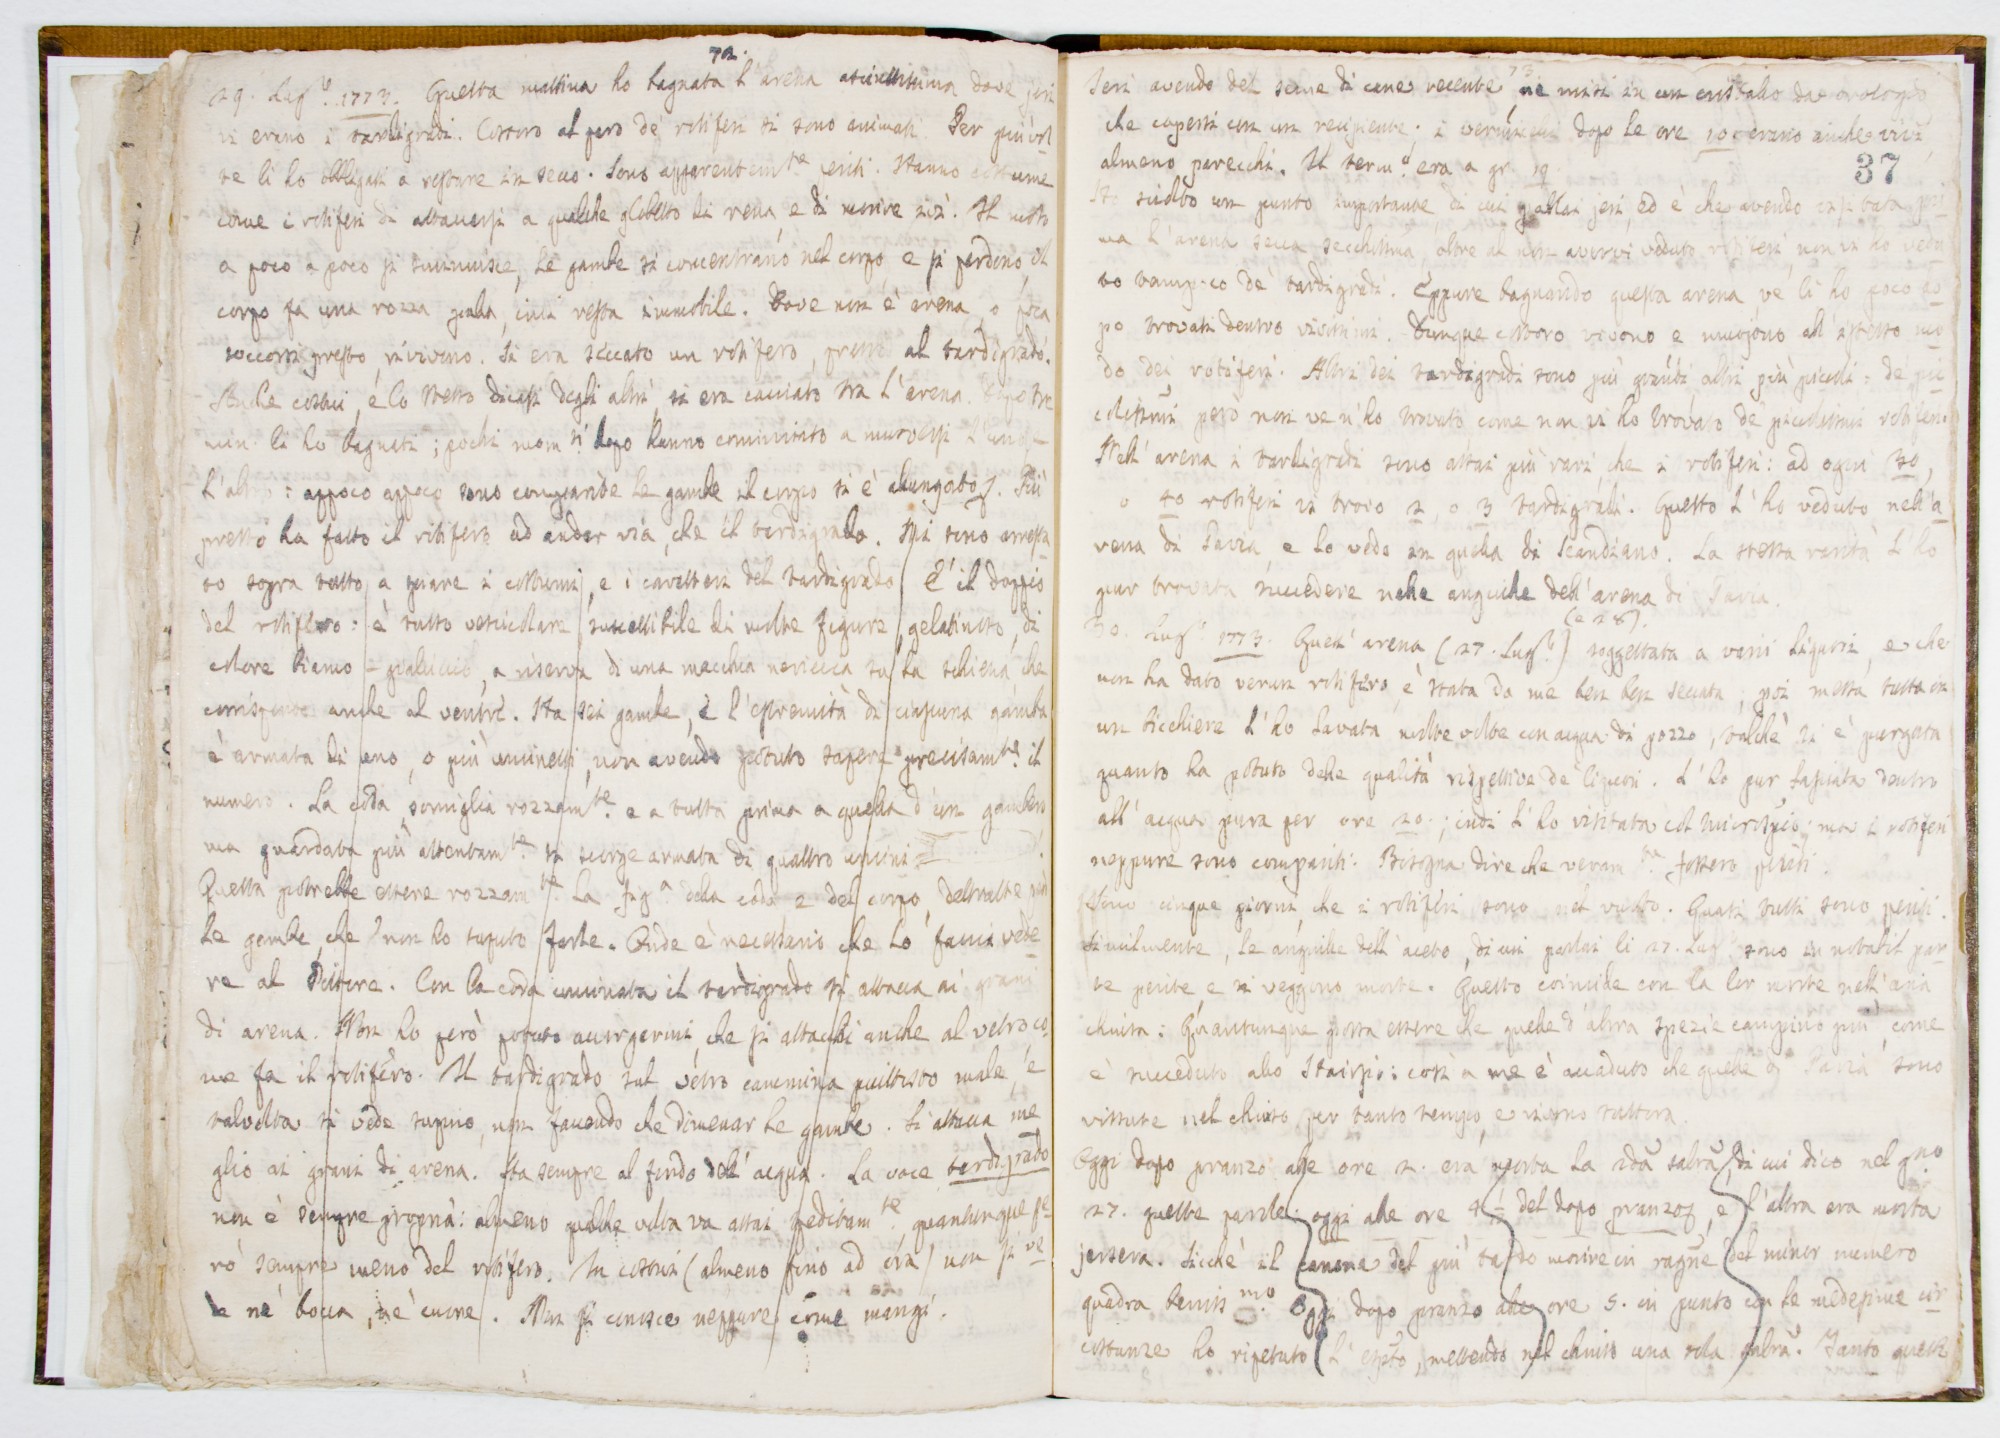 72.
29. Lug.º 1773. Questa mattina ho bagnata l'arena asciuttissima dove jeri
vi erano i tardigradi. Costoro al pero de' rotiferi si sono animati. Per più vol
te li ho obbligati a restare in secco. Sono apparentem.te periti. Hanno costume
come i rotiferi di attaversi a qualche globetto di rena, e di morire ivi. Il moto
a poco a poco si sminuisce, le gambe si concentrano nel corpo e si perdono, il
corpo fa una rozza palla, indi resta immobile. Dove non è arena, o poca
soccorsi presto, rivivono. Si era seccato un rotifero, presso al tardigrado.
Anche costui, e lo stesso dicasi degli altri, si era cacciato tra l'arena. Dopo tre
min. li ho bagnati; pochi mom.ti dopo hanno cominciato a muoversi l'uno e
l'altro: appoco appoco sono comparide le gambe il corpo si è allungato. Più
presto ha fatto il rotifero ad andar via, che il tardigrado. Mi sono arresta
to sopra tutto a notare i costumi, e i caratteri del tardigrado. E' il doppio
del rotifero: è tutto vescicolare suscettibile di molte figure, gelatinoso, di
colore bianco-gialliccio, a riserva di una macchia nericcia su la schiena che
corrisponde anche al ventre. Ha sei gambe, e l'estremità di ciascuna gamba
è armata di uno, o più uncinetti, non avendo potuto sapere precisam.te il
numero. La coda somiglia rozzam.te e a tutta prima a quella d'un gambero
ma guardata più attentam.te si scorge armata di quattro uncini
Questa potrebbe essere rozzam.te la fig.a della coda e del corpo, detratte però
le gambe, che non ho saputo farle. Onde è necessario che lo faccia vede
re al Pittore. Con la coda uncinata il tardigrado si attacca ai grani
di arena. Non ho però potuto accorgermi, che si attacchi anche al vetro, co
me fa il rotifero. Il tardigrado sul vetro cammina piuttosto male, e
talvolta si vede supino, non facendo che dimenar le gambe. Si attacca me
glio ai grani di arena. Sta sempre al fondo dell'acqua. La voce tardigrado
non è sempre propria: almeno qualche volta va assai speditam.te quantunque pe
rò sempre meno del rotifero. In costui (almeno fino ad ora) non si ve
de nè bocca, nè cuore. Non si conosce neppure come mangi.
73
Jeri avendo del seme di cane recente, ne misi in un cristallo da orologio
che copersi con un recipiente. i vermicelli dopo le ore 10 erano anche vivi
almeno parecchi. Il term.º era a gr. 19.
37
Ho sciolto un punto importante di cui parlai jeri, ed è che avendo visitata pri
ma l'arena secca secchissima, oltre al non avervi veduto rotiferi, non vi ho vedu
to tampoco de' tardigradi. Eppure bagnando questa arena ve li ho poco do
po trovati dentro vivissimi. Dunque costoro vivono e muojono all'istesso mo
do dei rotiferi. Altri dei tardigradi sono più grandi altri più piccoli: de pic
colissimi però non ve n'ho trovato come non vi ho trovato de' piccolissimi rotiferi.
Nell'arena i tardigradi sono assai più rari, che i rotiferi: ad ogni 30,
o 40 rotiferi vi trovo 2, o 3 tardigradi. Questo l'ho veduto nell'a
rena di Pavia e lo vedo in quella di Scandiano. La stessa rarità l'ho
pur trovata succedere nelle anguille dell'arena di Pavia.
(e 28).
30. Lug.º 1773. Quell'arena (27. Lug.º) soggettata a varii liquori, e che
non ha dato verun rotifero, è stata da me ben ben seccata; poi messa tutta in
un bicchiere l'ho lavata molte volte con acqua di pozzo, talchè si è purgata
quanto ha potuto delle qualità rispettive de' liquori. L'ho pur lasciata dentro
all'acqua pura per ore 20.; indi l'ho visitata col microscopio; ma i rotiferi
neppure sono comparsi. Bisogna dire che veram.te fossero periti.
Sono cinque giorni, che i rotiferi sono nel vuoto. Quasi tutti sono periti.
Similmente, le anguille dell'aceto, di cui parlai li 27. Lug.º sono in notabil par
te perite, e si veggono morte. Questo coincide con la lor morte nell'aria
chiusa: Quantunque possa essere che quelle d'altra spezie campino più, come
è succeduto allo Stairpi: così a me è accaduto che quelle di Pavia sono
vissute nel chiuso per tanto tempo, e vivono tuttora.
Oggi dopo pranzo alle ore 2. era morta la 2da salra di cui dico nel g.no
27. queste parole: oggi alle ore 4 1/2 del dopo pranzo, e l'altra era morta
jersera. Sicchè il canone del più tardo morire in ragne del minor numero
quadra beniss.mo Oggi dopo pranzo alle ore 5. in punto con le medesime cir
costanze ho ripetuto l'esp.to, mettendo nel chiuso una sola salra. Tanto queste